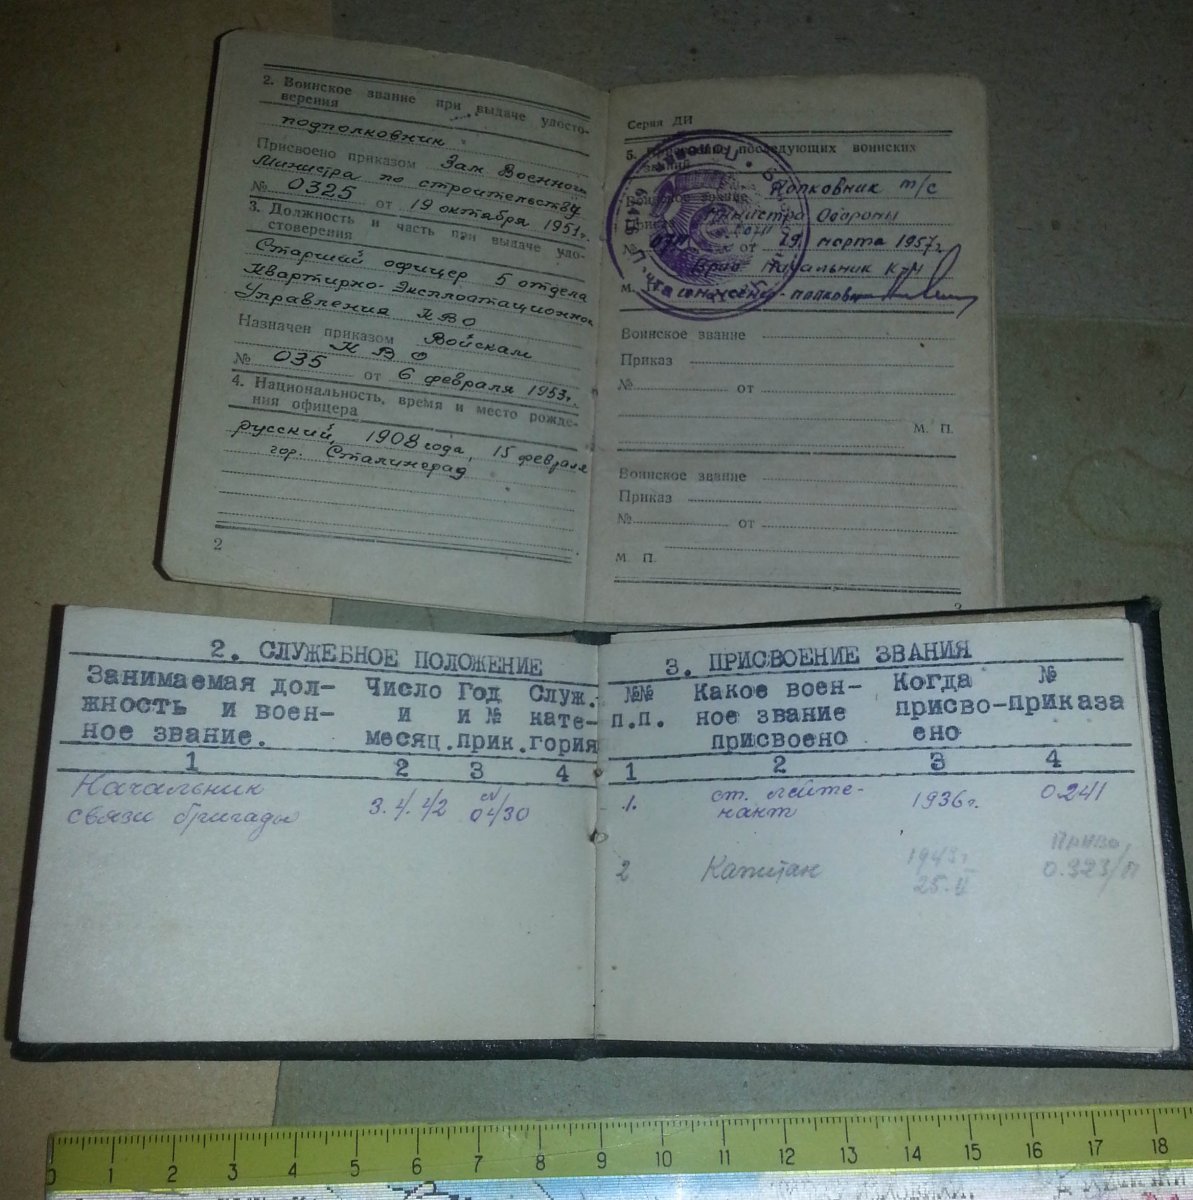 2. Воинское звание при выдаче удосто-
верения
подполковник
Присвоено приказом Зам. Военного
Министра по строительству
№ 0325 от 19 октября 1951г.
3. Должность и часть при выдаче удо-
стоверения
Старший офицер 5 отдела
Квартирно-Эксплоатационного
Управления КВО
Назначен приказом Войскам
КВО
№ 035 от 6 февраля 1953г.
4. Национальность, время и место рожде-
ния офицера
русский, 1908 года, 15 февраля
гор. Сталинград
2
Серия ДИ
5. последующих воинских
званий
Воинское звание Полковник т/с
Министра Обороны
№ от 29 марта 1957г.
Врид Начальник
М. инженер-полковн
Воинское звание
Приказ
№ от
М. П.
Воинское звание
Приказ
№ от
М П.
3
2. СЛУЖЕБНОЕ ПОЛОЖЕНИЕ
Занимаемая дол- Число Год Служ.
жность и воен- и и № кате-
ное звание. месяц. прик. гория
1 2 3 4
Начальник
связи бригады 3.4.42 04/30
3. ПРИСВОЕНИЕ ЗВАНИЯ
№№ Какое воен- Когда №
п.п. ное звание присво- приказа
присвоено ено
1 2 3 4
1. ст. лейте- 1936г. 0.241
нант
2 Капитан 1943г
25.II 0.323/п
0 1 2 3 4 5 6 7 8 9 10 11 12 13 14 15 16 17 18